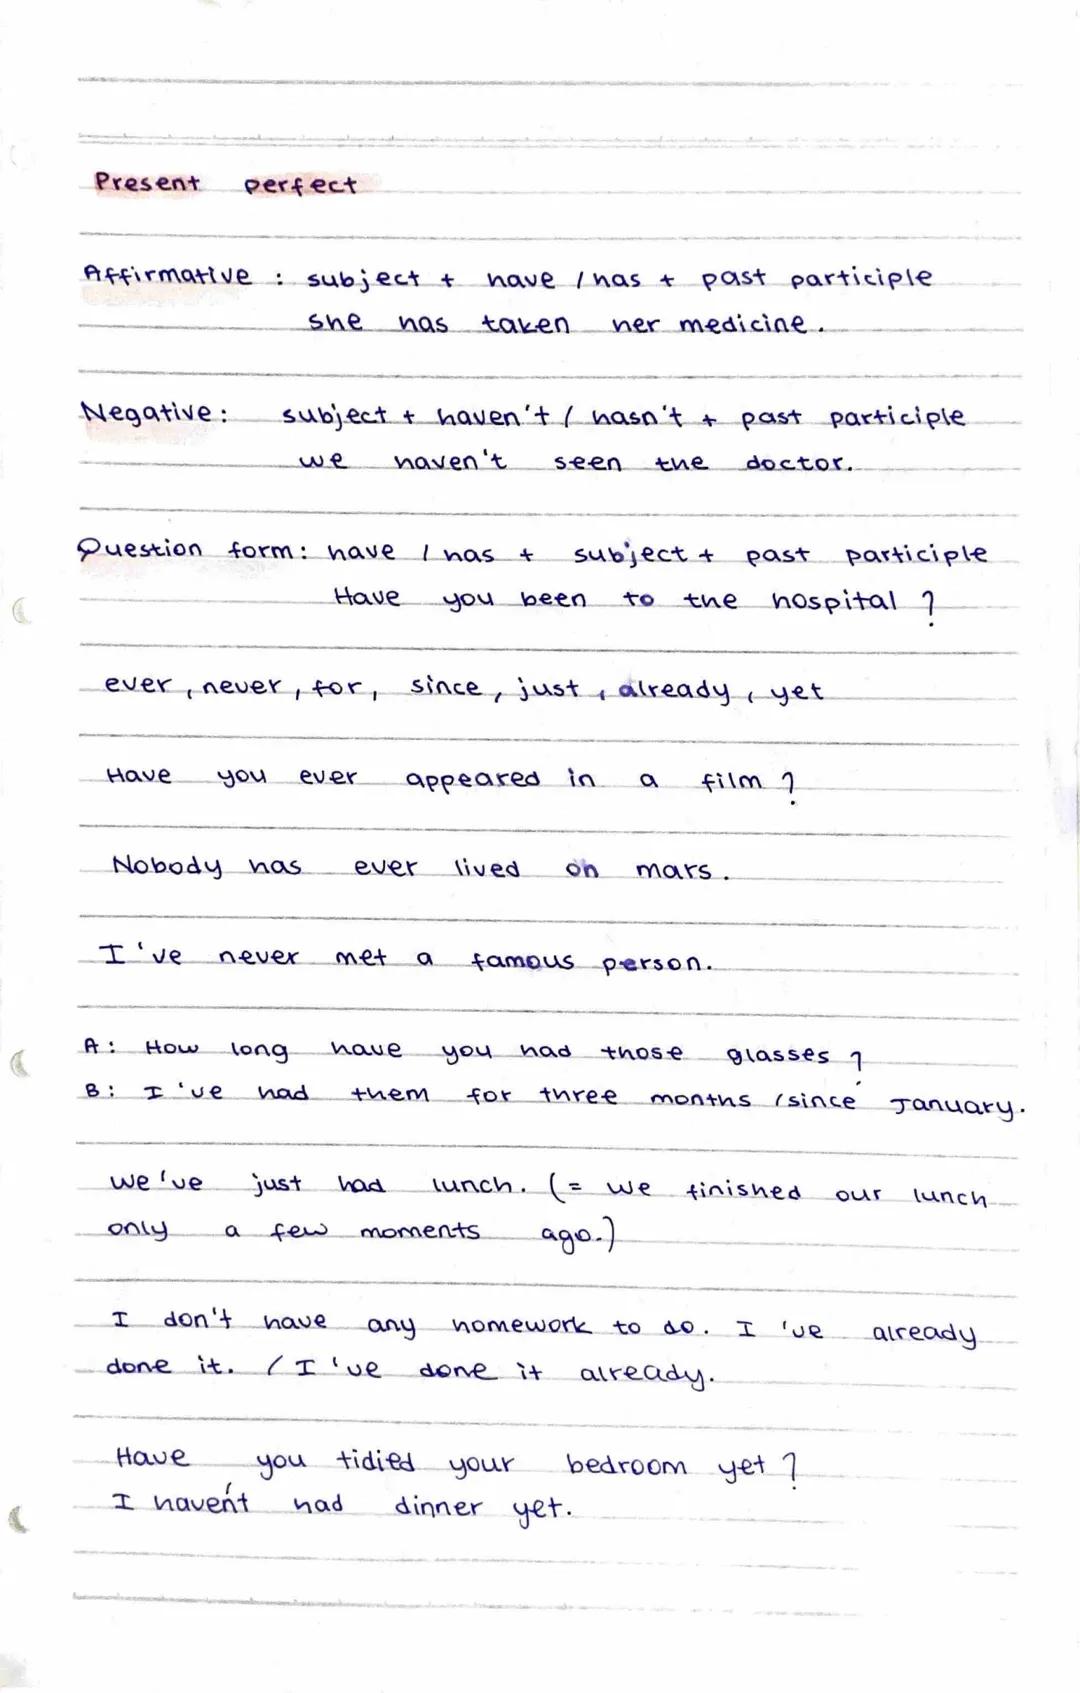 Present perfect
Affirmative : subject + have / has + past participle
she has taken her medicine.
Negative: subject + haven't / hasn't + past participle
we haven't seen the doctor.
Question form: have / has + subject + past participle
Have you been to the hospital ?
ever, never, for, since, just, already, yet
Have you ever appeared in a film ?
Nobody has ever lived on mars.
I've never met a famous person.
A: How long have you had those glasses ?
B: I've had them for three months /since January.
we've just had lunch. (= we finished our lunch
only a few moments ago.)
I don't have any homework to do. I've already
done it. / I've done it already.
Have you tidied your bedroom yet ?
I haven't had dinner yet.